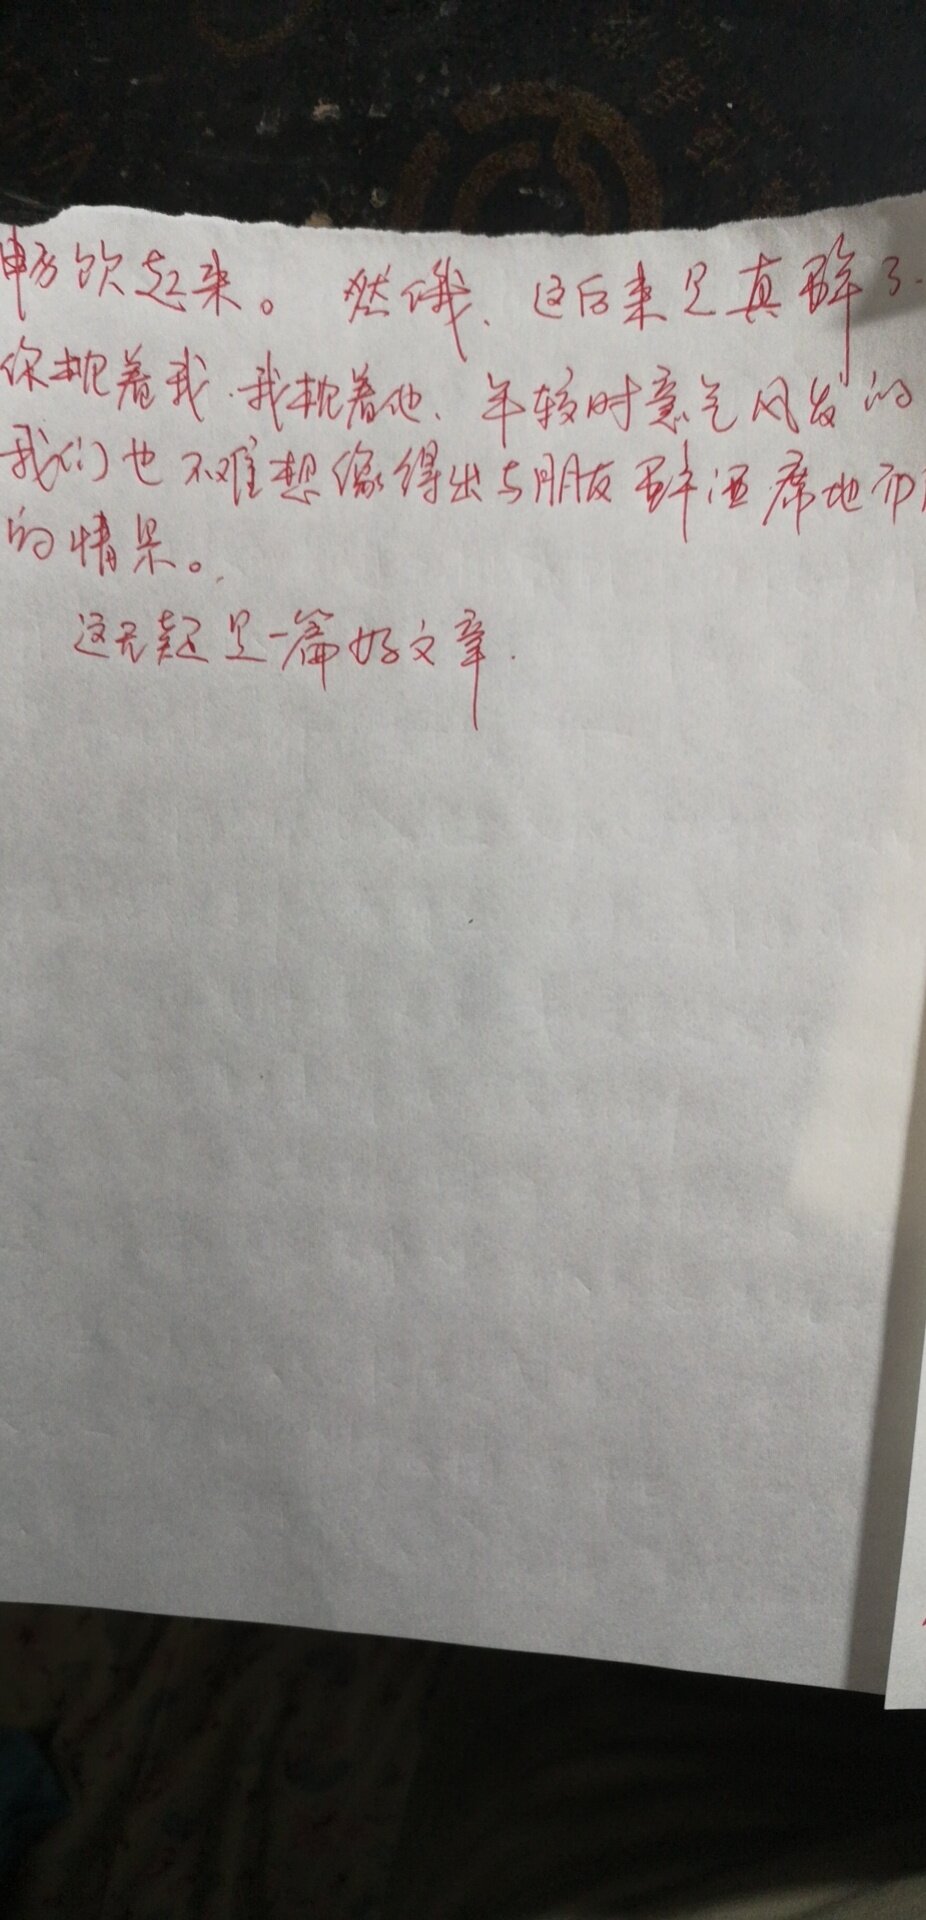 畅饮起来。然哦、这后来是真醉了.
你枕着我.我枕着他、年较时意气风发的
我们也不难想像得出与朋友醉酒席地而
的情景。
这无疑是一篇好文章.